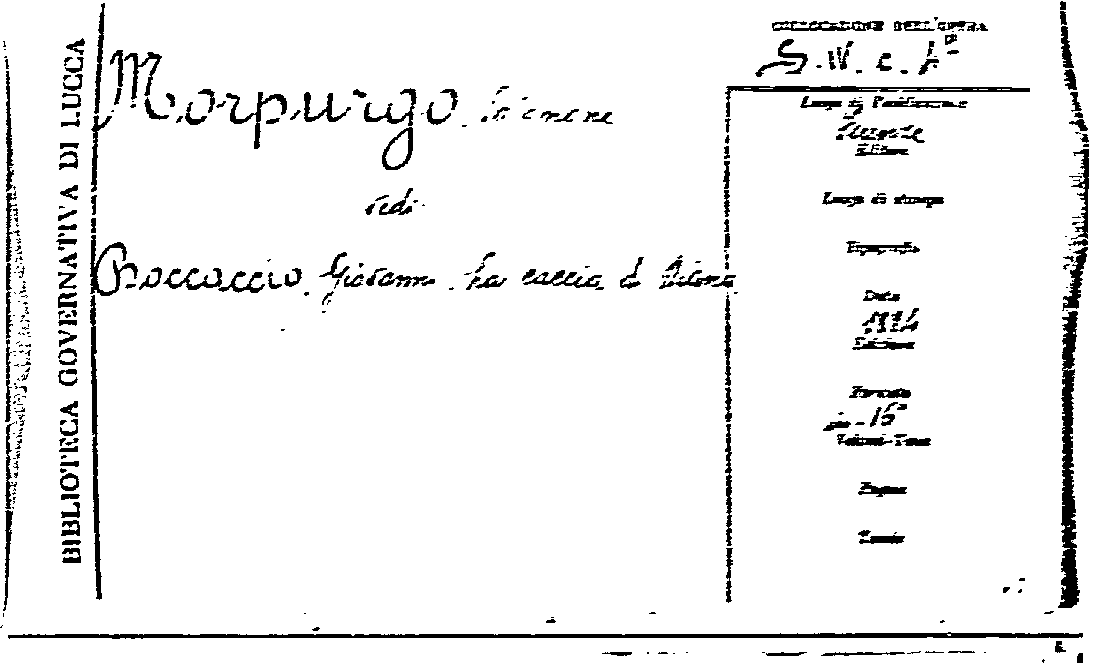 BIBLIOTECA GOVERNATIVA DI LUCCA
COLLOCAZIONE DELL'OPERA
Morpurgo
vedi
Boccaccio Giovanni. La caccia di Diana
Luogo di Pubblicazione
Firenze
Editore
Luogo di stampa
Tipografia
Data
Edizione
Formato
in-16°
Volumi-Tomi
Pagine
Tavole